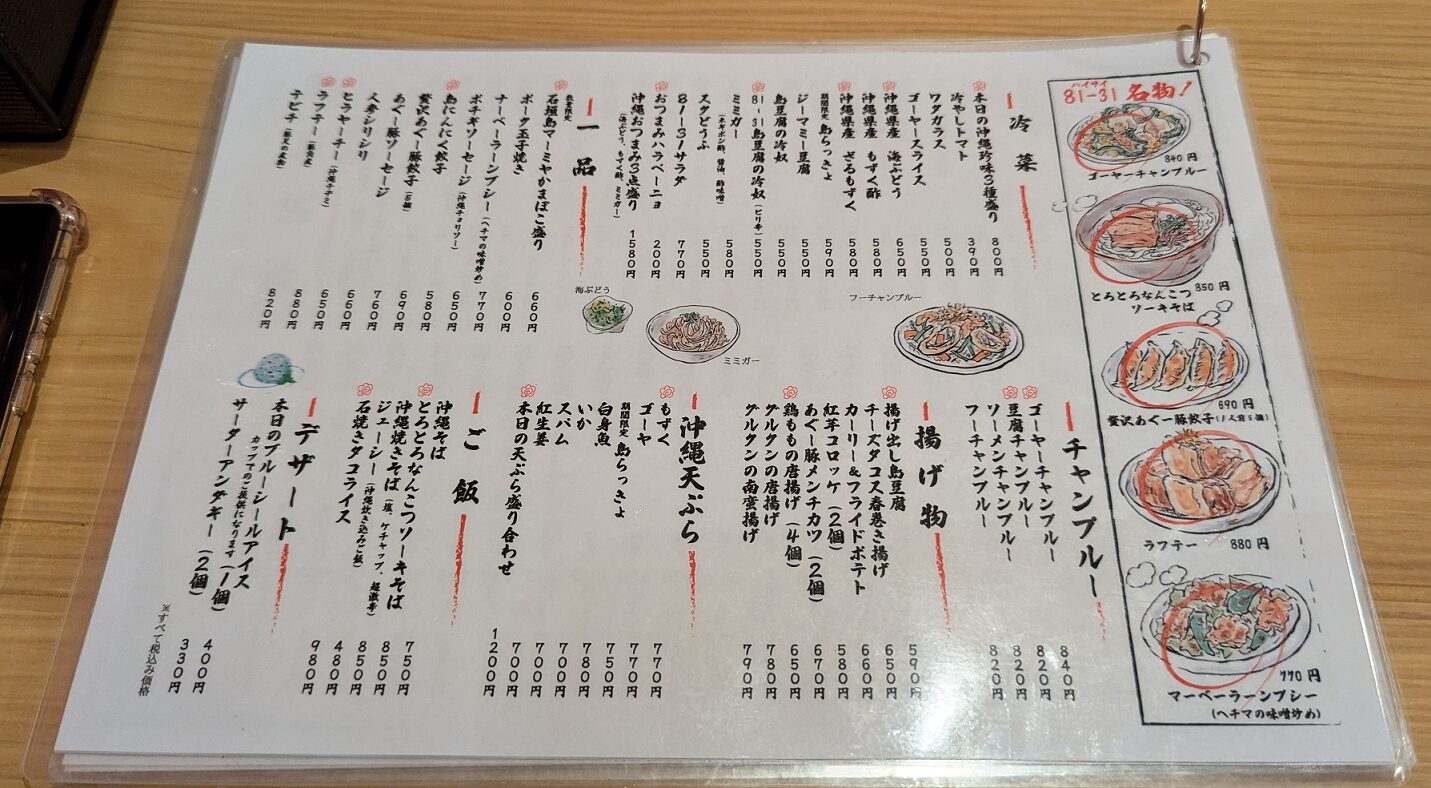 ハイサイ
81-31 名物!
840円
ゴーヤーチャンプルー
850円
とろとろなんこつ
ソーキそば
690円
贅沢あぐー豚餃子(1人前5個)
ラフテー 880円
770円
ナーベーラーンブシー
(ヘチマの味噌炒め)
冷菜
本日の沖縄珍味3種盛り 800円
冷やしトマト 390円
ワタガラス 550円
ゴーヤースライス 550円
沖縄県産 海ぶどう 650円
沖縄県産 もずく酢 580円
沖縄県産 ざるもずく 580円
期間限定 島らっきょ 590円
ジーマミー豆腐 550円
島豆腐の冷奴 550円
81-31島豆腐の冷奴(ピリ辛) 550円
ミミガー 580円
(ネギポン酢、醤油、酢味噌)
スクどうふ 550円
81-31サラダ 770円
おつまみハラペーニョ 200円
沖縄おつまみ3点盛り 1580円
(海ぶどう、もずく酢、ミミガー)
一品
数量限定
石垣島マーミヤかまぼこ盛り 660円
ポーク玉子焼き 600円
ナーベーラーンブシー(ヘチマの味噌炒め) 770円
ポチギソーセージ(沖縄チョリソー) 650円
島にんにく餃子 580円
贅沢あぐー豚餃子(5個) 690円
あぐー豚ソーセージ 760円
人参シリシリ 660円
ヒラヤーチー(沖縄チヂミ) 650円
ラフテー(豚角煮) 880円
テビチ(豚足の煮物) 820円
フーチャンプルー
ミミガー
海ぶどう
チャンプルー
ゴーヤーチャンプルー 840円
豆腐チャンプルー 820円
ソーメンチャンプルー 820円
フーチャンプルー 820円
揚げ物
揚げ出し島豆腐 590円
チーズタコス春巻き揚げ 650円
カーリー&フライドポテト 660円
紅芋コロッケ(2個) 580円
あぐー豚メンチカツ(2個) 670円
鶏ももの唐揚げ(4個) 650円
グルクンの唐揚げ 780円
グルクンの南蛮揚げ 790円
沖縄天ぷら
もずく 770円
ゴーヤ 770円
期間限定 島らっきょ 750円
白身魚 780円
いか 700円
スパム 700円
紅生姜 700円
本日の天ぷら盛り合わせ 1200円
ご飯
沖縄そば 750円
とろとろなんこつソーキそば 850円
沖縄焼きそば(塩、ケチャップ、超激辛) 850円
ジューシー(沖縄炊き込みご飯) 480円
石焼きタコライス 980円
デザート
本日のブルーシールアイス(1個) 400円
カップでのご提供になります
サーターアンダギー(2個) 330円
※すべて税込み価格